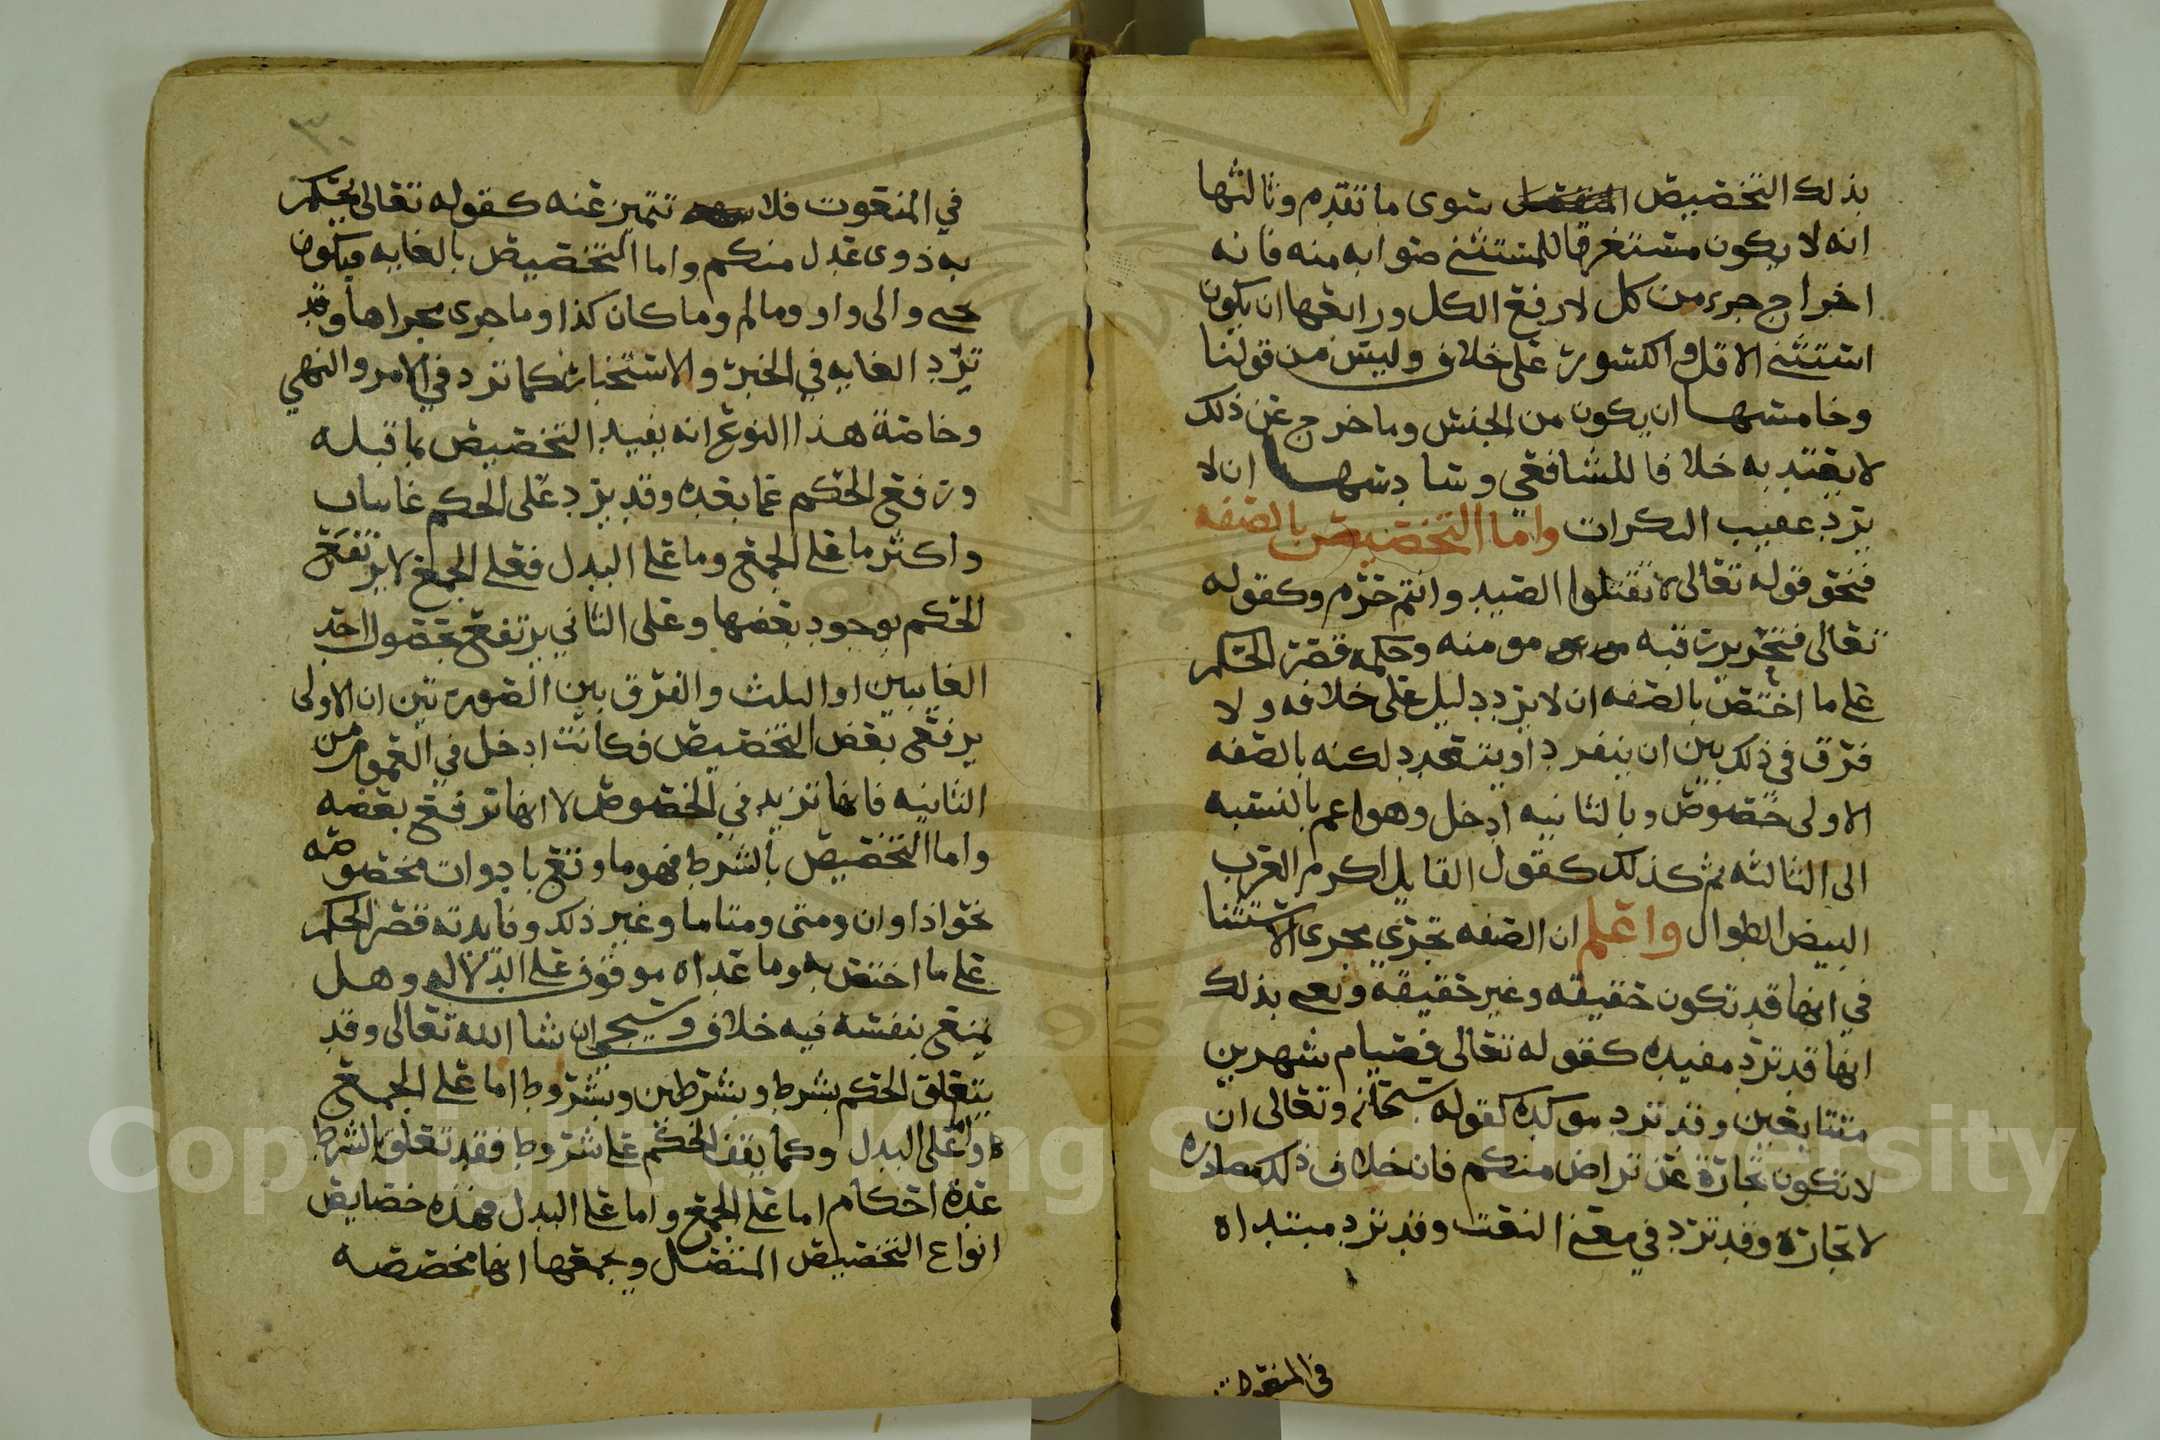 بذلك التخصيص المنفصل سوى ما تقدم وثالثها
انه لا يكون مستغرقا للمستثنى صوابه منه فانه
اخراج جزء من كل لا رفع الكل ورابعها ان يكون
استثنى الاقل والكسور على خلاف وليس من قولنا
وخامسها ان يكون من الجنس وما خرج عن ذلك
لا يعتد به خلافا للشافعي وسادسها ان لا
يرد عقيب النكرات واما التخصيص بالصفه
فنحو قوله تعالى لا تقتلوا الصيد وانتم حرم وكقوله
تعالى فتحرير رقبه مومنه وحكمه قصر الحكم
على ما اختص بالصفه ان لا يرد دليل على خلافه ولا
فرق في ذلك بين ان ينفرد او يتعدد لكنه بالصفه
الاولى خصوص وبالثانيه ادخل وهو اعم بالنسبه
الى الثالثه ثم كذلك كقول القايل اكرم العرب
البيض الطوال واعلم ان الصفه تجري مجرى الاستثنا
في انها قد تكون حقيقه وغير حقيقه ونعني بذلك
انها قد ترد مفيده كقوله تعالى فصيام شهرين
متتابعين وقد ترد موكده كقوله سبحانه وتعالى ان
لا تكون تجارة عن تراض منكم فان خلاف ذلك مصادره
لا تجاره وقد ترد في معنى النعت وقد ترد مبتداه
في المنعوت
٣٠
في المنعوت فلا تتميز عنه كقوله تعالى يحكم
به ذوى عدل منكم واما التخصيص بالغايه فيكون
بحتى والى واو وما لم وما كان كذا وما جرى مجراها وقد
ترد الغايه في الخبر والاستخبار كما ترد في الامر والنهي
وخاصة هذا النوع انه يفيد التخصيص بما قبله
ورفع الحكم عما بعده وقد يرد على الحكم غايتان
واكثر ما على الجمع وما على البدل فعلى الجمع لا يرتفع
الحكم بوجود بعضها وعلى الثاني يرتفع بحصول احد
الغايتين او الثلث والفرق بين الصورتين ان الاولى
يرفع بعض التخصيص فكانت ادخل في العموم من
الثانيه فانها تزيد في الخصوص لا انها ترفع بعضه
واما التخصيص بالشرط فهو ما وقع بادوات مخصوصه
نحو اذا وان ومتى ومتاما وغير ذلك وفايدته قصر الحكم
على ما اختص به وما عداه موقوف على الدلاله وهل
يمنع بنفسه فيه خلاف وسيجي ان شا الله تعالى وقد
يتعلق الحكم بشرط وبشرطين وبشروط اما على الجمع
واما على البدل وكما يقف الحكم على شروط فقد تعلق بالشرط
عدة احكام اما على الجمع واما على البدل فهذه خصايص
انواع التخصيص المتصل ويجمعها انها مخصصه
Copyright © King Saud University
1957